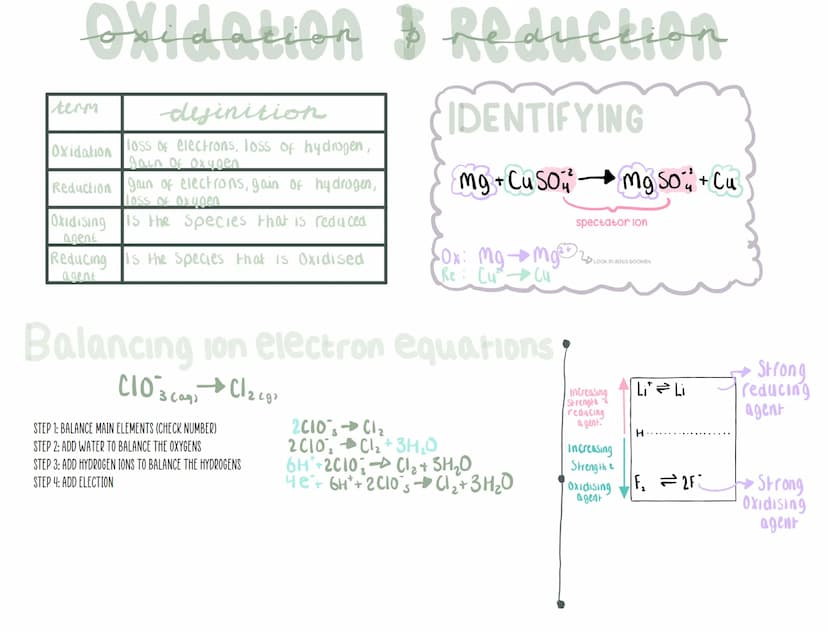 Oxidation & Reduction
term definition
Oxidation loss of electrons, loss of hydrogen,
gain of oxygen
Reduction gain of electrons, gain of hydrogen,
loss of oxygen
Oxidising agent Is the species that is reduced
Reducing agent Is the species that is Oxidised
IDENTIFYING
Mg + CuSO₄⁻² → MgSO₄⁻² + Cu
spectator ion
Ox: Mg → Mg²⁺
Look in data booklet
Re: Cu → Cu
Balancing ion electron equations
ClO⁻₃(aq) → Cl₂(g)
STEP 1: BALANCE MAIN ELEMENTS (CHECK NUMBER)
STEP 2: ADD WATER TO BALANCE THE OXYGENS
STEP 3: ADD HYDROGEN IONS TO BALANCE THE HYDROGENS
STEP 4: ADD ELECTION
2ClO⁻₃ → Cl₂
2ClO⁻₃ → Cl₂ + 3H₂O
6H⁺ + 2ClO⁻₃ → Cl₂ + 3H₂O
4e⁻ + 6H⁺ + 2ClO⁻₃ → Cl₂ + 3H₂O
Increasing
Strength
reducing
agent
Increasing
Strength
Oxidising
agent
Li⁺ ⇌ Li
H
F₂ ⇌ 2F⁻
Strong
reducing
agent
Strong
Oxidising
agent